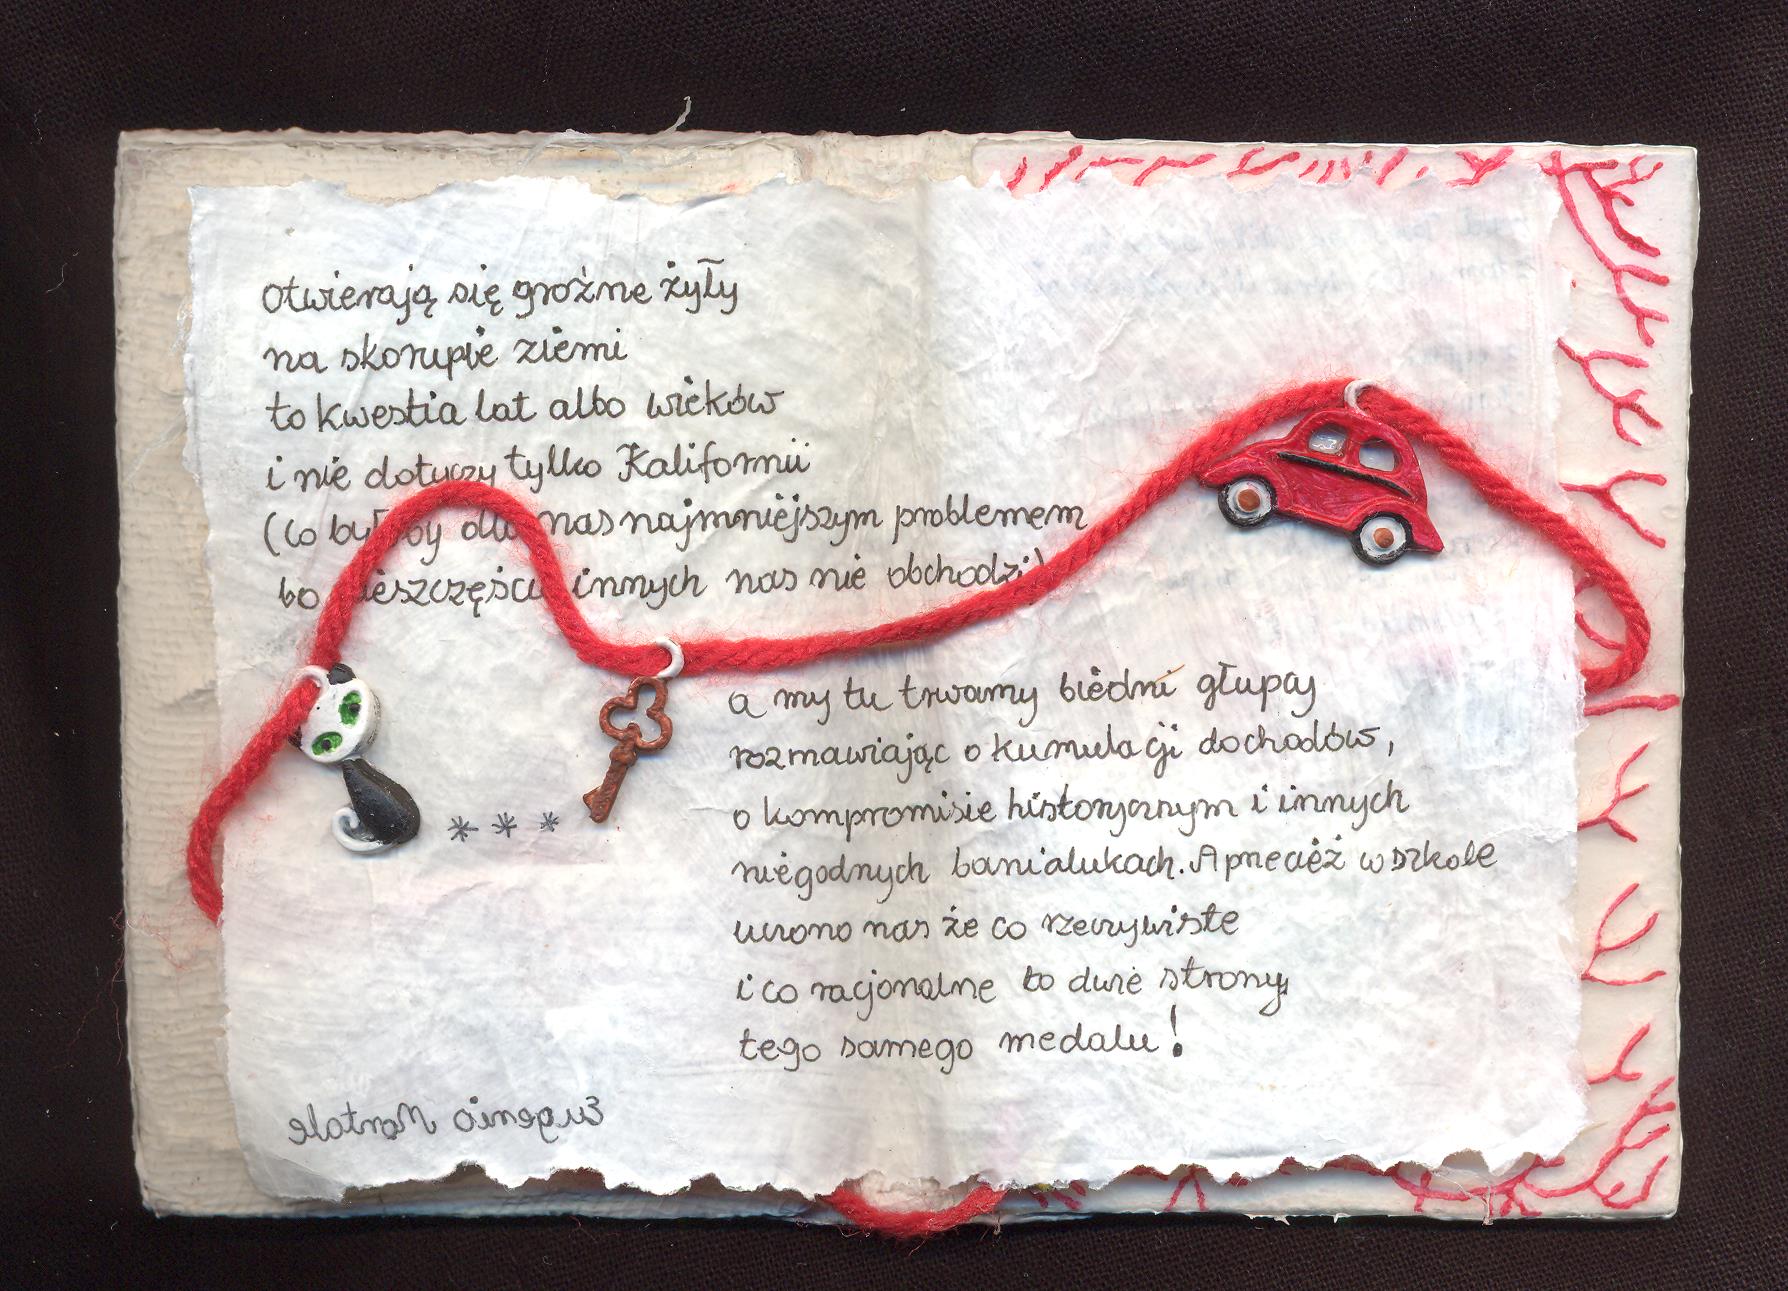 otwierają się groźne żyły
na skorupie ziemi
to kwestia lat albo wieków
i nie dotyczy tylko Kalifornii
(co byłoby dla nas najmniejszym problemem
bo nieszczęście innych nas nie obchodzi)
a my tu trwamy biedni głupcy
rozmawiając o kumulacji dochodów,
o kompromisie historycznym i innych
niegodnych banialukach. A przecież w szkole
uczono nas że co rzeczywiste
i co racjonalne to dwie strony
tego samego medalu!
* * *
Eugenio Montale